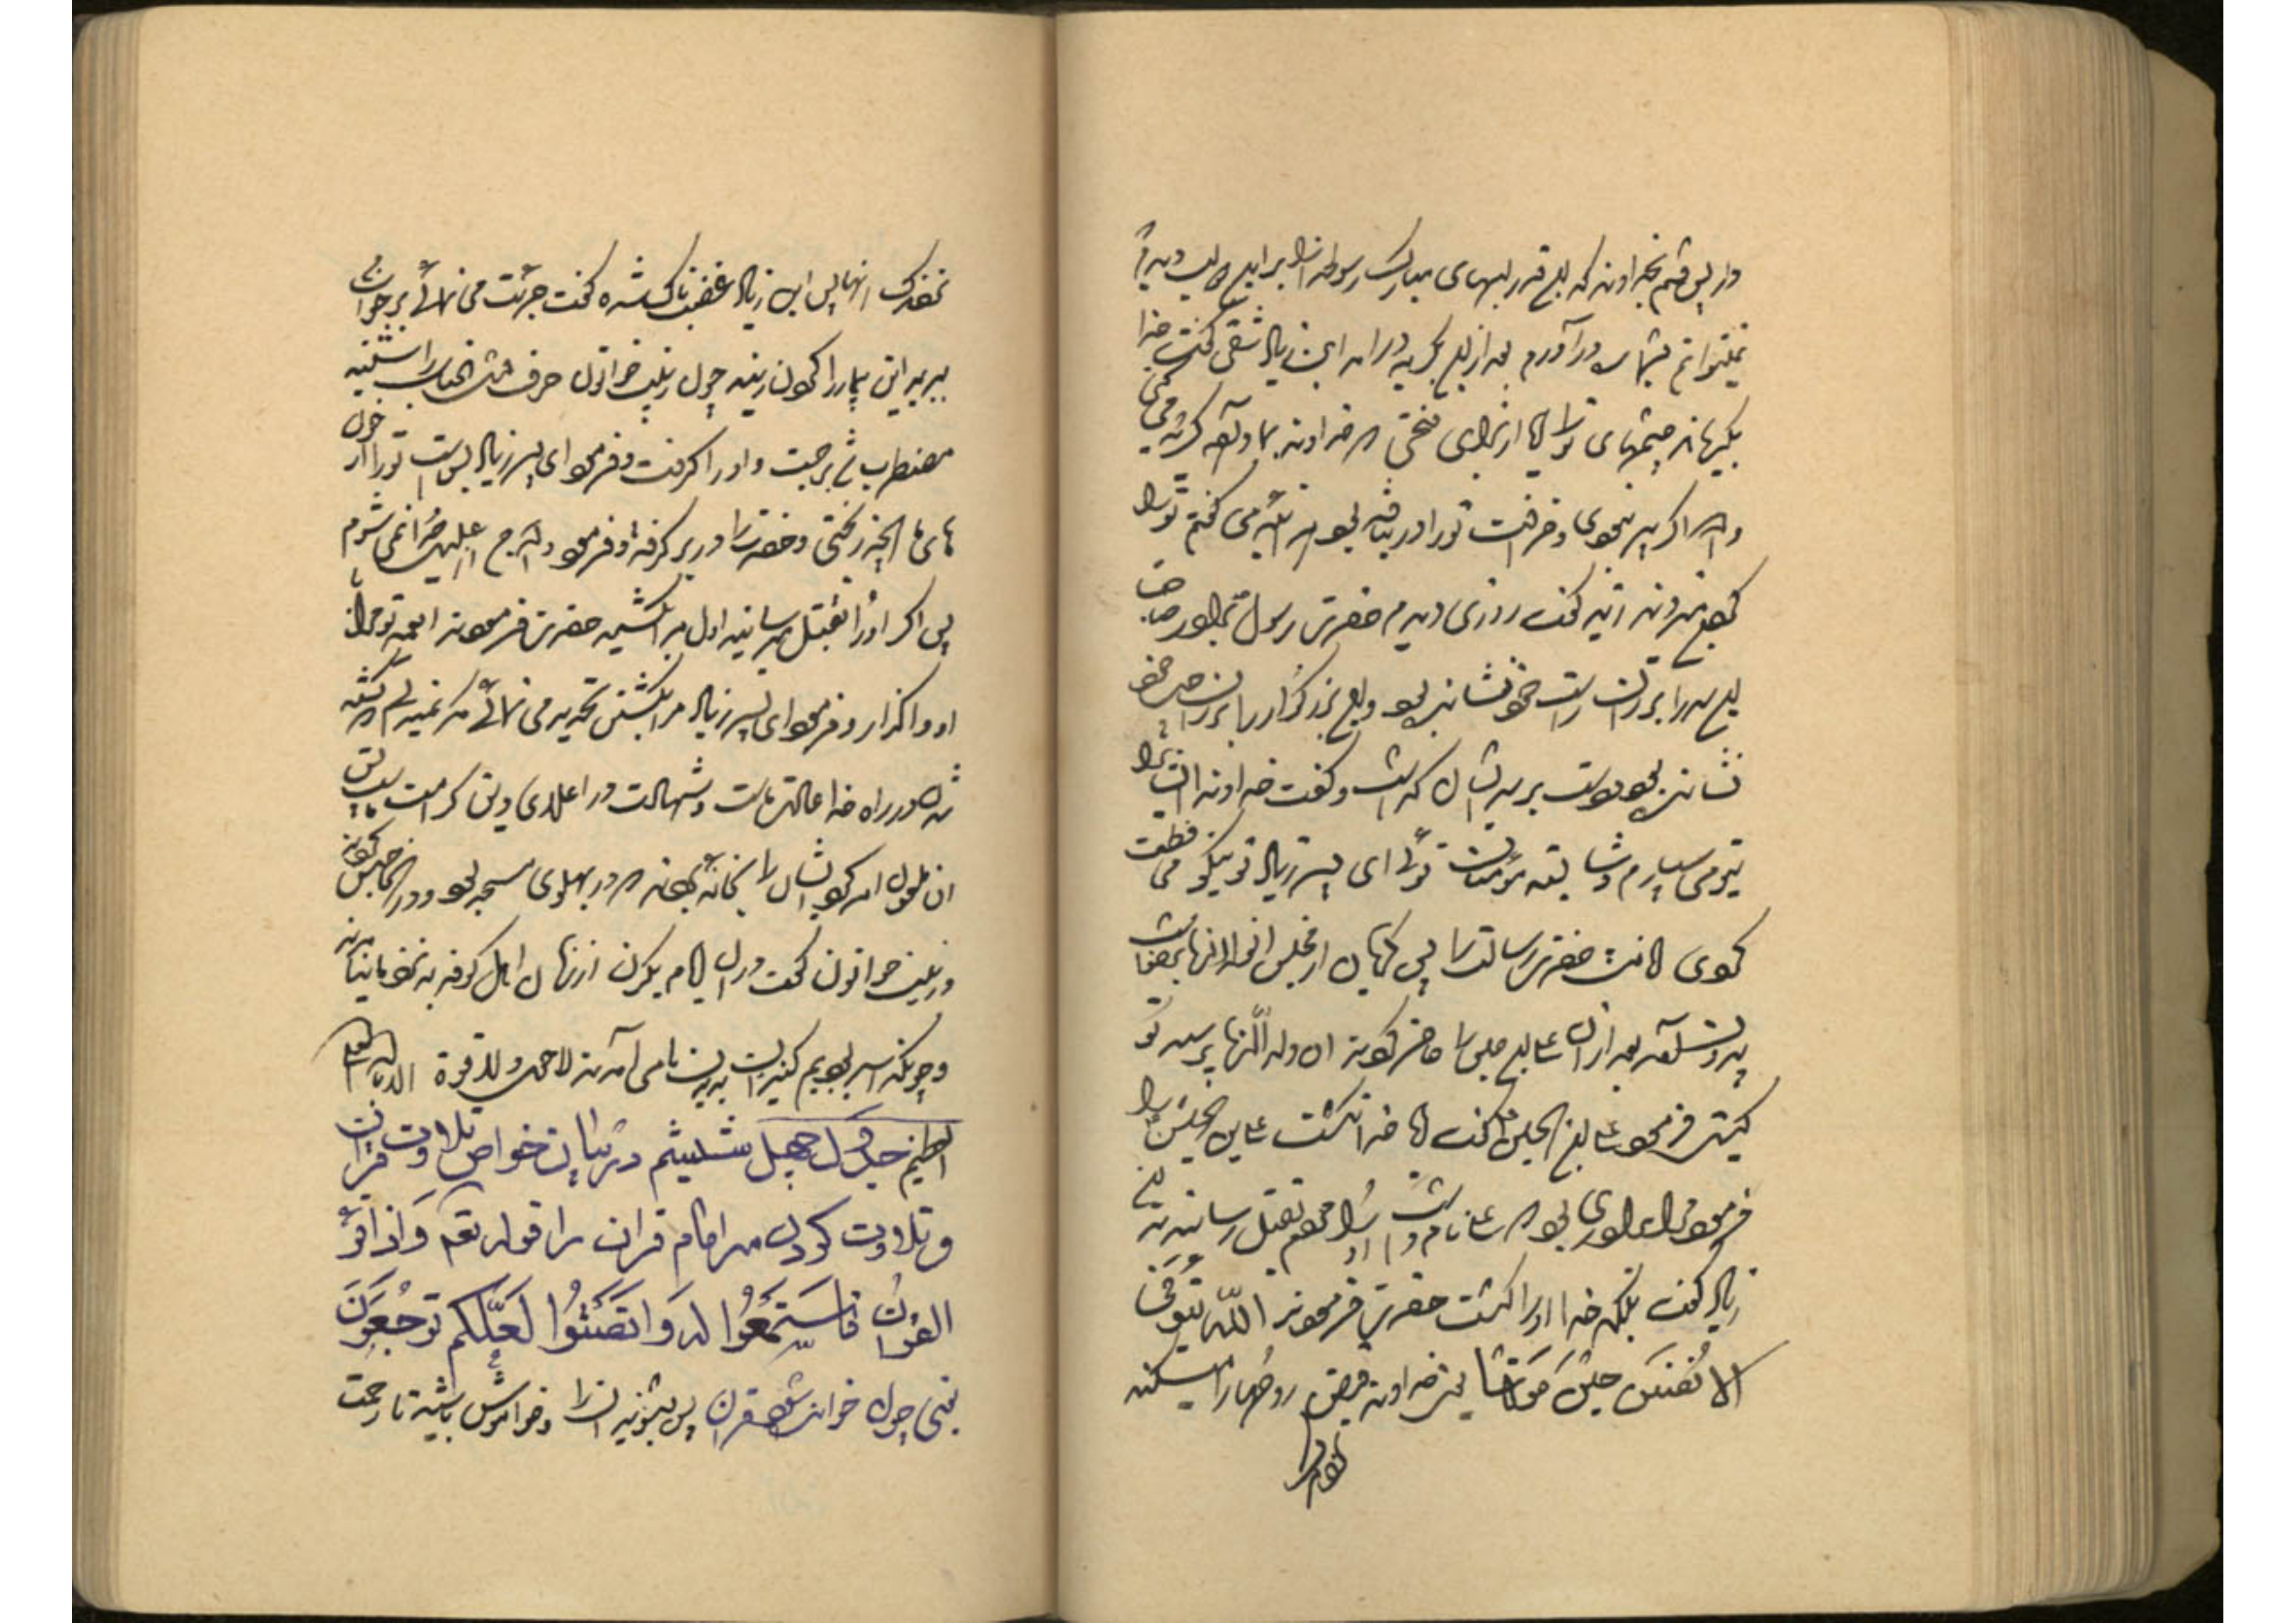 دار پس قسم بخداوند که این قدر لبهای مبارک رسول خدا را بر این لب دیدم
نمیتوانم بشماره درآورم بعد از این بگریه درآمد ابن زیاد شقی گفت خدا
بگریاند چشمهای تو را آیا از برای فتحی که خداوند بما داده گریه می کنی
والله اگر پیر نبودی و خرافت تو را درنیافته بود هر آینه می گفتم تو را
گردن بزنند زید گفت روزی دیدم حضرت رسول
این سر را بر ران راست خود نشانیده بود و این بزرگوار را بر ران چپ خود
نشانیده بود دست بر سر ایشان گذاشت و گفت خداوندا ایشان را
بتو می سپارم و شایسته مؤمنان توئی ای پسر زیاد تو نیکو محافظت
کردی امانت حضرت رسالت را پس گریان از مجلس آن ولدالزنا برخاست
بیرون آمد بعد از آن علی بن حسین را حاضر کردند آن ولدالزنا پرسید تو
کیستی فرمود علی بن الحسین گفت آیا خدا نکشت علی بن الحسین را
فرمود برادری بود مرا علی نام داشت او را مردم بقتل رسانیدند ابن
زیاد گفت بلکه خدا او را کشت حضرت فرمودند الله یتوفی
الانفس حین موتها یعنی خداوند قبض روحها را میکند
نفر که از آنها پس ابن زیاد غضبناک شده گفت جرئت می نمائی بر جواب من
ببرید این بیمار را گردن زنید چون زینب خواتون حرف آن جناب را شنید
مضطرب شد برجست و او را گرفت و فرمود ای پسر زیاد بس است تو را از خون
های ما آنچه ریختی و حضرت را در بر گرفت و فرمود والله من از علی جدا نمی شوم
پس اگر او را بقتل میرسانید اول مرا بکشید حضرت فرمودند ای عمه تو مرا با
او واگذار و فرمود ای پسر زیاد مرا بکشتن تهدید می نمائی مگر نمیدانی که کشته
شدن در راه خدا عادت ماست و شهادت در اعلای دین کرامت ماست پس
آن ملعون امر کرد ایشان را بخانه بردند که در پهلوی مسجد بود و در آنجا حبس کردند
و زینب خواتون گفت در آن ایام یک زن از زنان اهل کوفه به نزد ما نیامد
و چونکه اسیر بودیم کنیزان بدیدن ما می آمدند لاحول ولا قوة الا بالله العلی
العظیم جدول چهل ششم در بیان خواص تلاوت قرآن
و تلاوت کردن مر امام قران را قوله تعم وَاذا قُرِءَ
القرآن فَاستَمِعُوا لَهُ وَانصَتُوا لَعَلَّکُم تُرحَمُونَ
یعنی چون خوانده شود قرآن پس بشنوید آن را و خاموش باشید تا رحمت